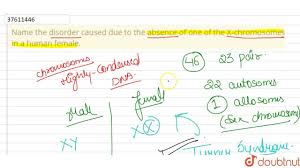 37611446
Name the disorder caused due to the absence of one of the X-chromosomes
in a human female.
chromosomes
Highly-Condensed
DNA
46
23 pair
22 autosomes
1 allosomes
(Sex chromosome)
Male
female
XY
XX
Turner Syndrome
doubtnut